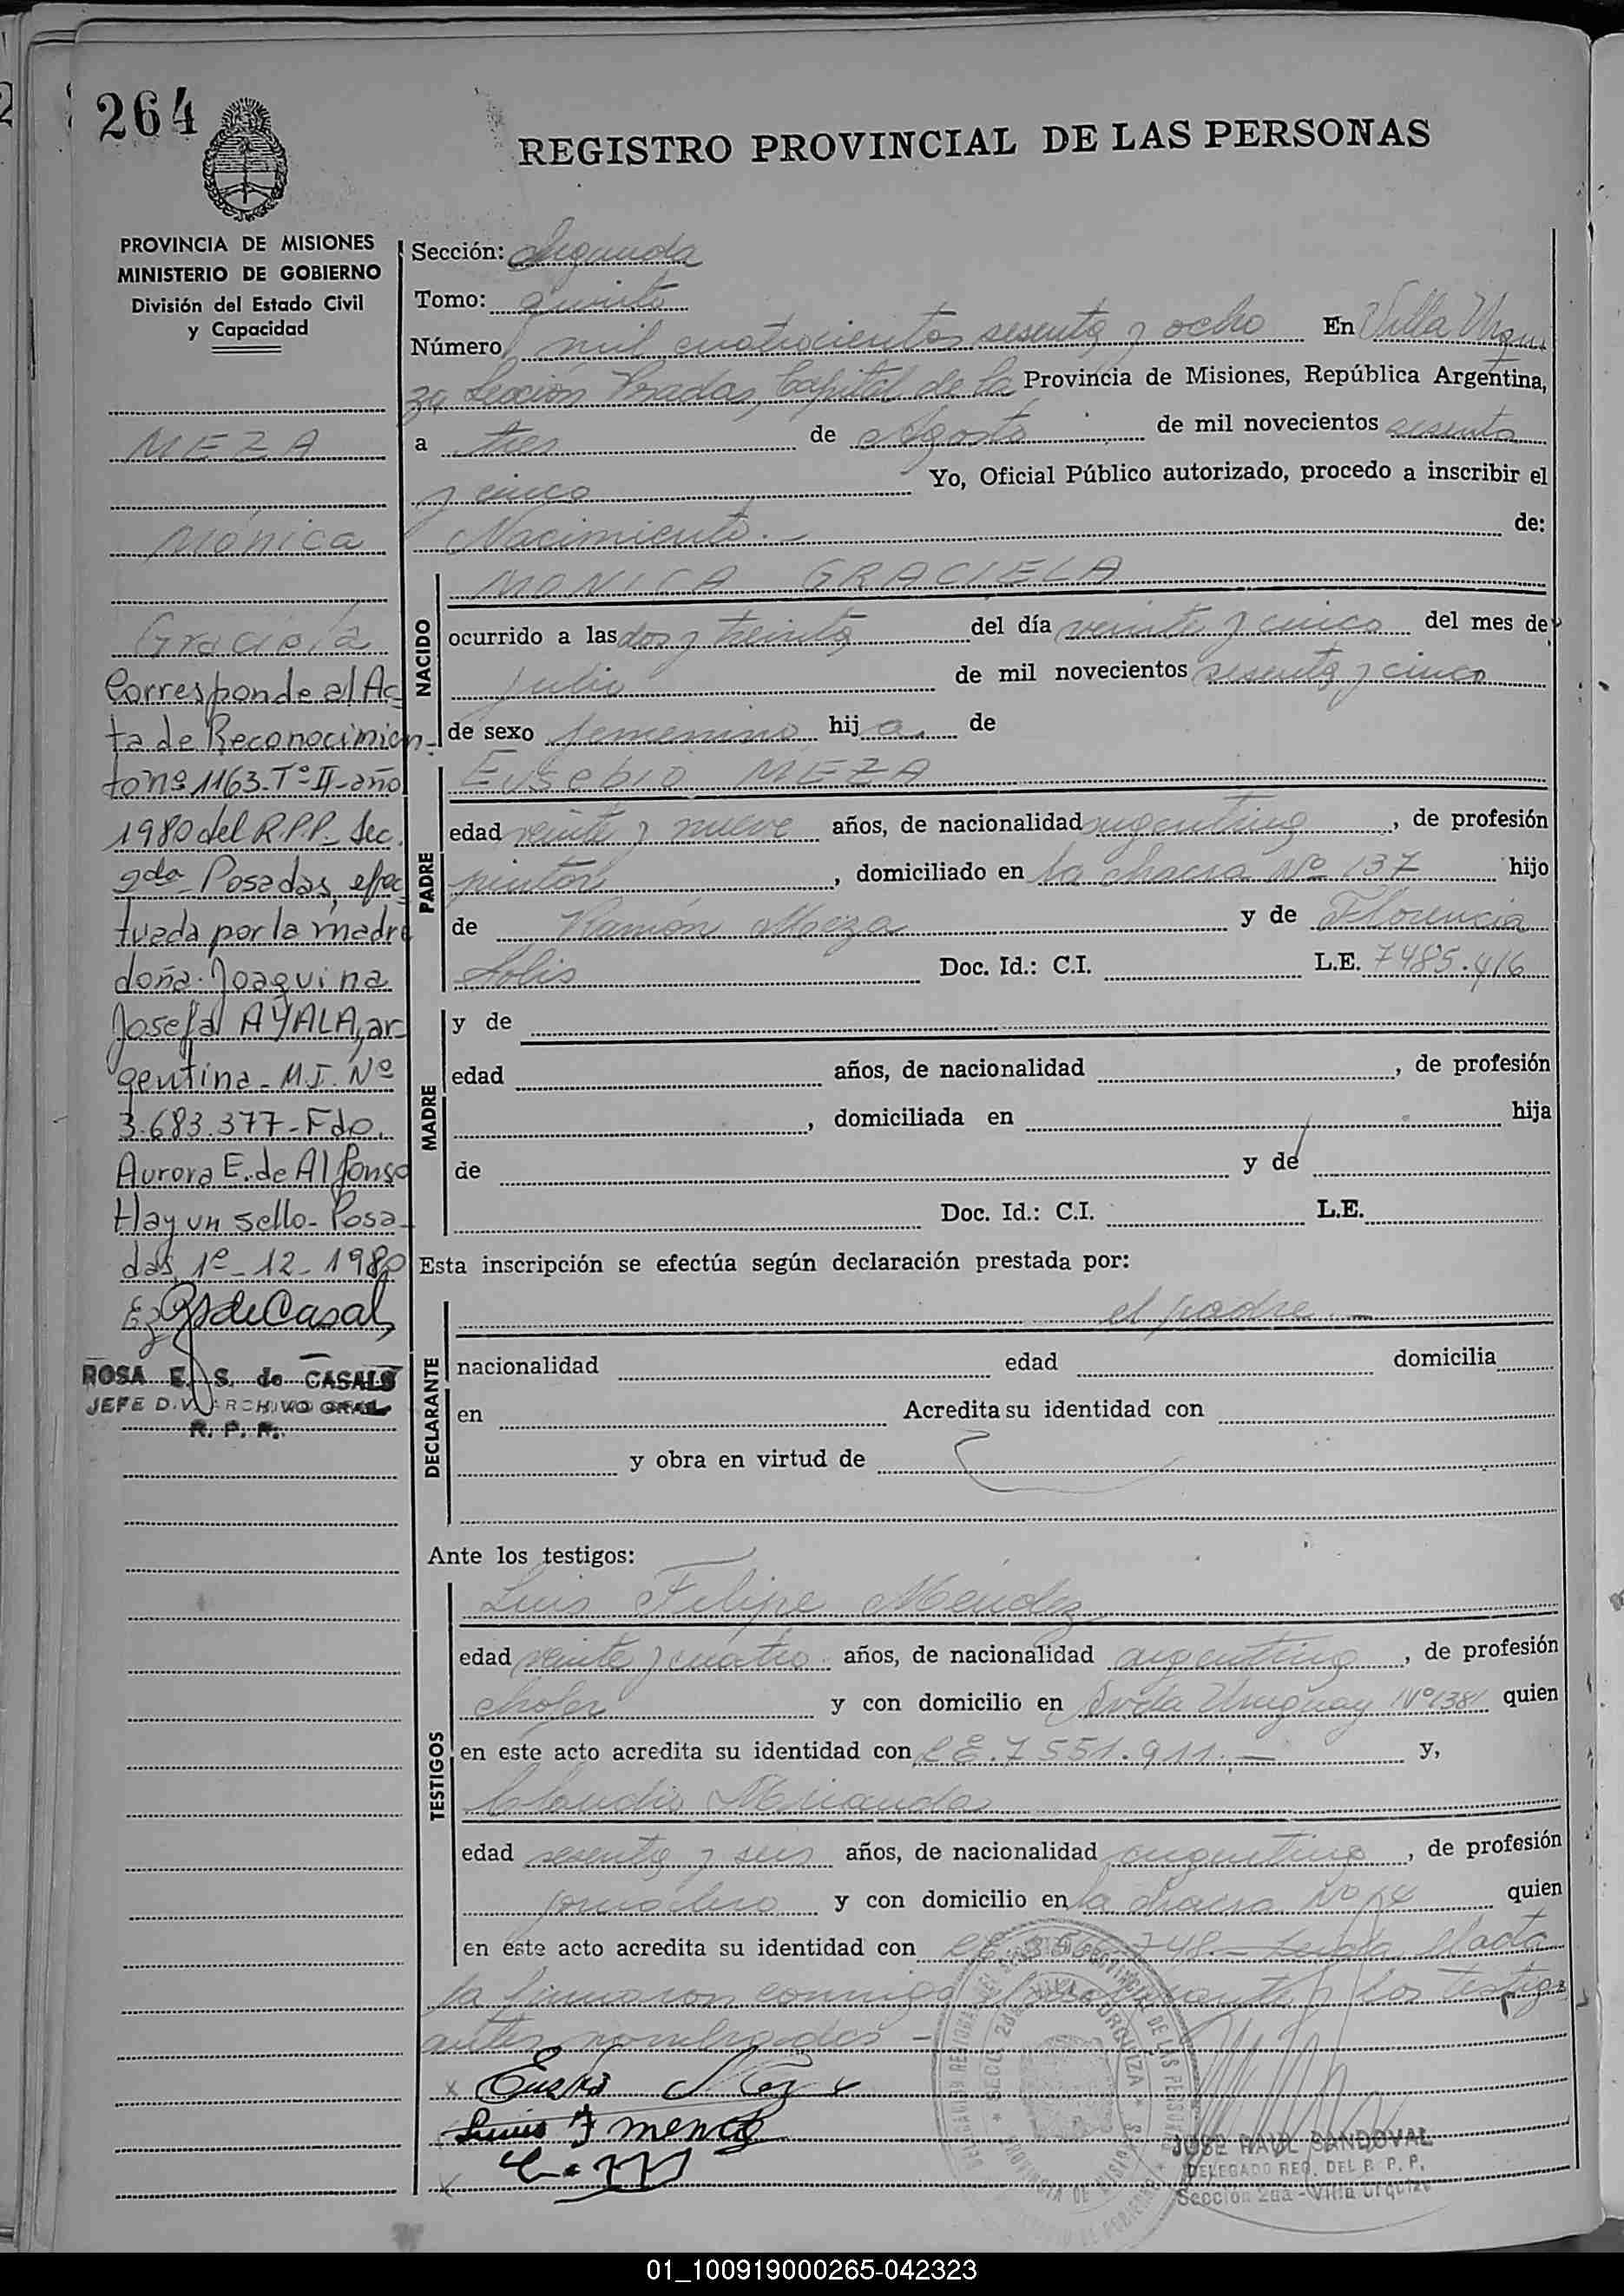 264
REGISTRO PROVINCIAL DE LAS PERSONAS
PROVINCIA DE MISIONES
MINISTERIO DE GOBIERNO
División del Estado Civil
y Capacidad
MEZA
Mónica
Graciela
Corresponde al Ac
ta de Reconocimien-
to nº 1163-Tº II-año
1980 del R.P.P. Sec.
2da Posadas, efec
tuada por la madre
doña Joaquina
Josefa AYALA, ar
gentina - M.I. Nº
3.683.377 - Fdo.
Aurora E. de Alfonso
Hay un sello - Posa-
das, 1º - 12 - 1980
ROSA E. S. de CASALS
JEFE DIV. ARCHIVO GRAL
R. P. P.
Sección: Segunda
Tomo: quinto
Número mil cuatrocientos sesenta y ocho En Villa Urqui
za Sección Posadas, Capital de la Provincia de Misiones, República Argentina,
a tres de Agosto de mil novecientos sesenta
y cinco Yo, Oficial Público autorizado, procedo a inscribir el
Nacimiento.- de:
NACIDO
MONICA GRACIELA
ocurrido a las dos y treinta del día veinte y cinco del mes de
Julio de mil novecientos sesenta y cinco
de sexo femenino hija de
PADRE
Eusebio MEZA
edad veinte y nueve años, de nacionalidad argentina, de profesión
pintor, domiciliado en la chacra Nº 137 hijo
de Ramón Meza y de Florencia
Solis Doc. Id.: C.I. L.E. 7485.416
MADRE
y de
edad años, de nacionalidad , de profesión
, domiciliada en hija
de y de
Doc. Id.: C.I. L.E.
Esta inscripción se efectúa según declaración prestada por:
DECLARANTE
el padre.-
nacionalidad edad domicilia
en Acredita su identidad con
y obra en virtud de
Ante los testigos:
TESTIGOS
Luis Felipe Mendez
edad veinte y cuatro años, de nacionalidad argentina, de profesión
chofer y con domicilio en Avda Uruguay Nº 1381 quien
en este acto acredita su identidad con L.E. 7551.911.- y,
Claudio Miranda
edad sesenta y seis años, de nacionalidad argentina, de profesión
jornalero y con domicilio en la chacra Nº quien
en este acto acredita su identidad con 748.- Leida el acta
la firmaron conmigo los testigos
antes nombrados -
Luis F mendez
JOSE RAUL SANDOVAL
DELEGADO REG. DEL R. P. P.
Sección 2da - Villa Urquiza
01_100919000265-042323